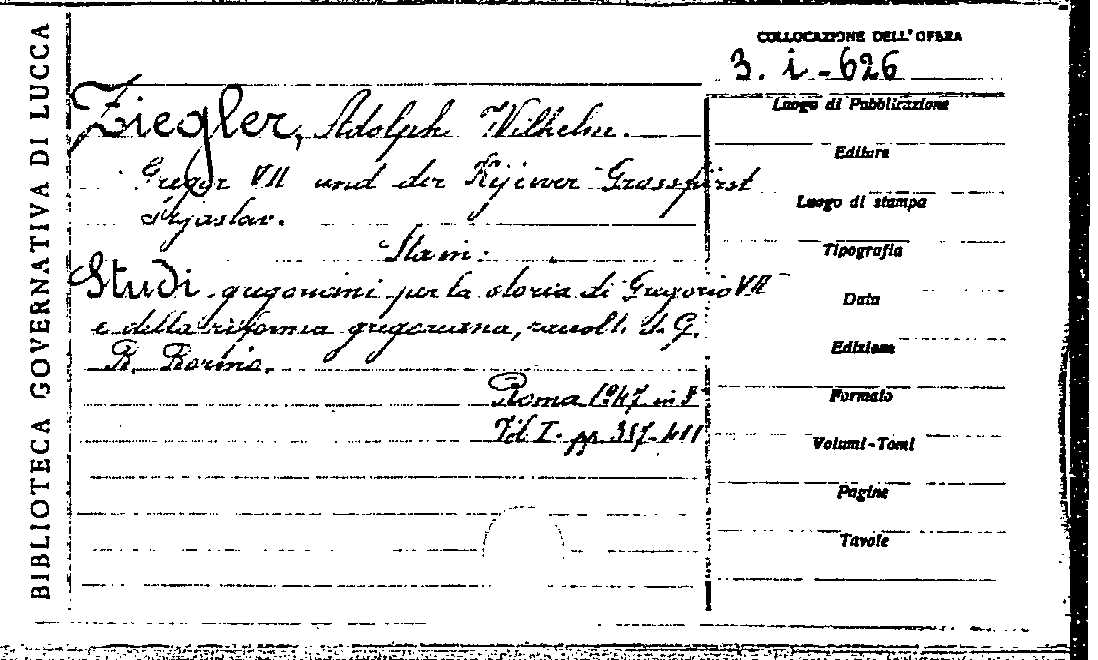 BIBLIOTECA GOVERNATIVA DI LUCCA
COLLOCAZIONE DELL'OPERA
3. i - 626
Ziegler, Adolph Wilhelm.
Gregor VII und der Kijewer Grossfürst
Izjaslav.
Sta in:
Studi gregoriani per la storia di Gregorio VII
e della riforma gregoriana, raccolti d. G.
B. Borino.
Roma 1947 in 8°
Vol I. pp. 387-411
Luogo di Pubblicazione
Editore
Luogo di stampa
Tipografia
Data
Edizione
Formato
Volumi-Tomi
Pagine
Tavole